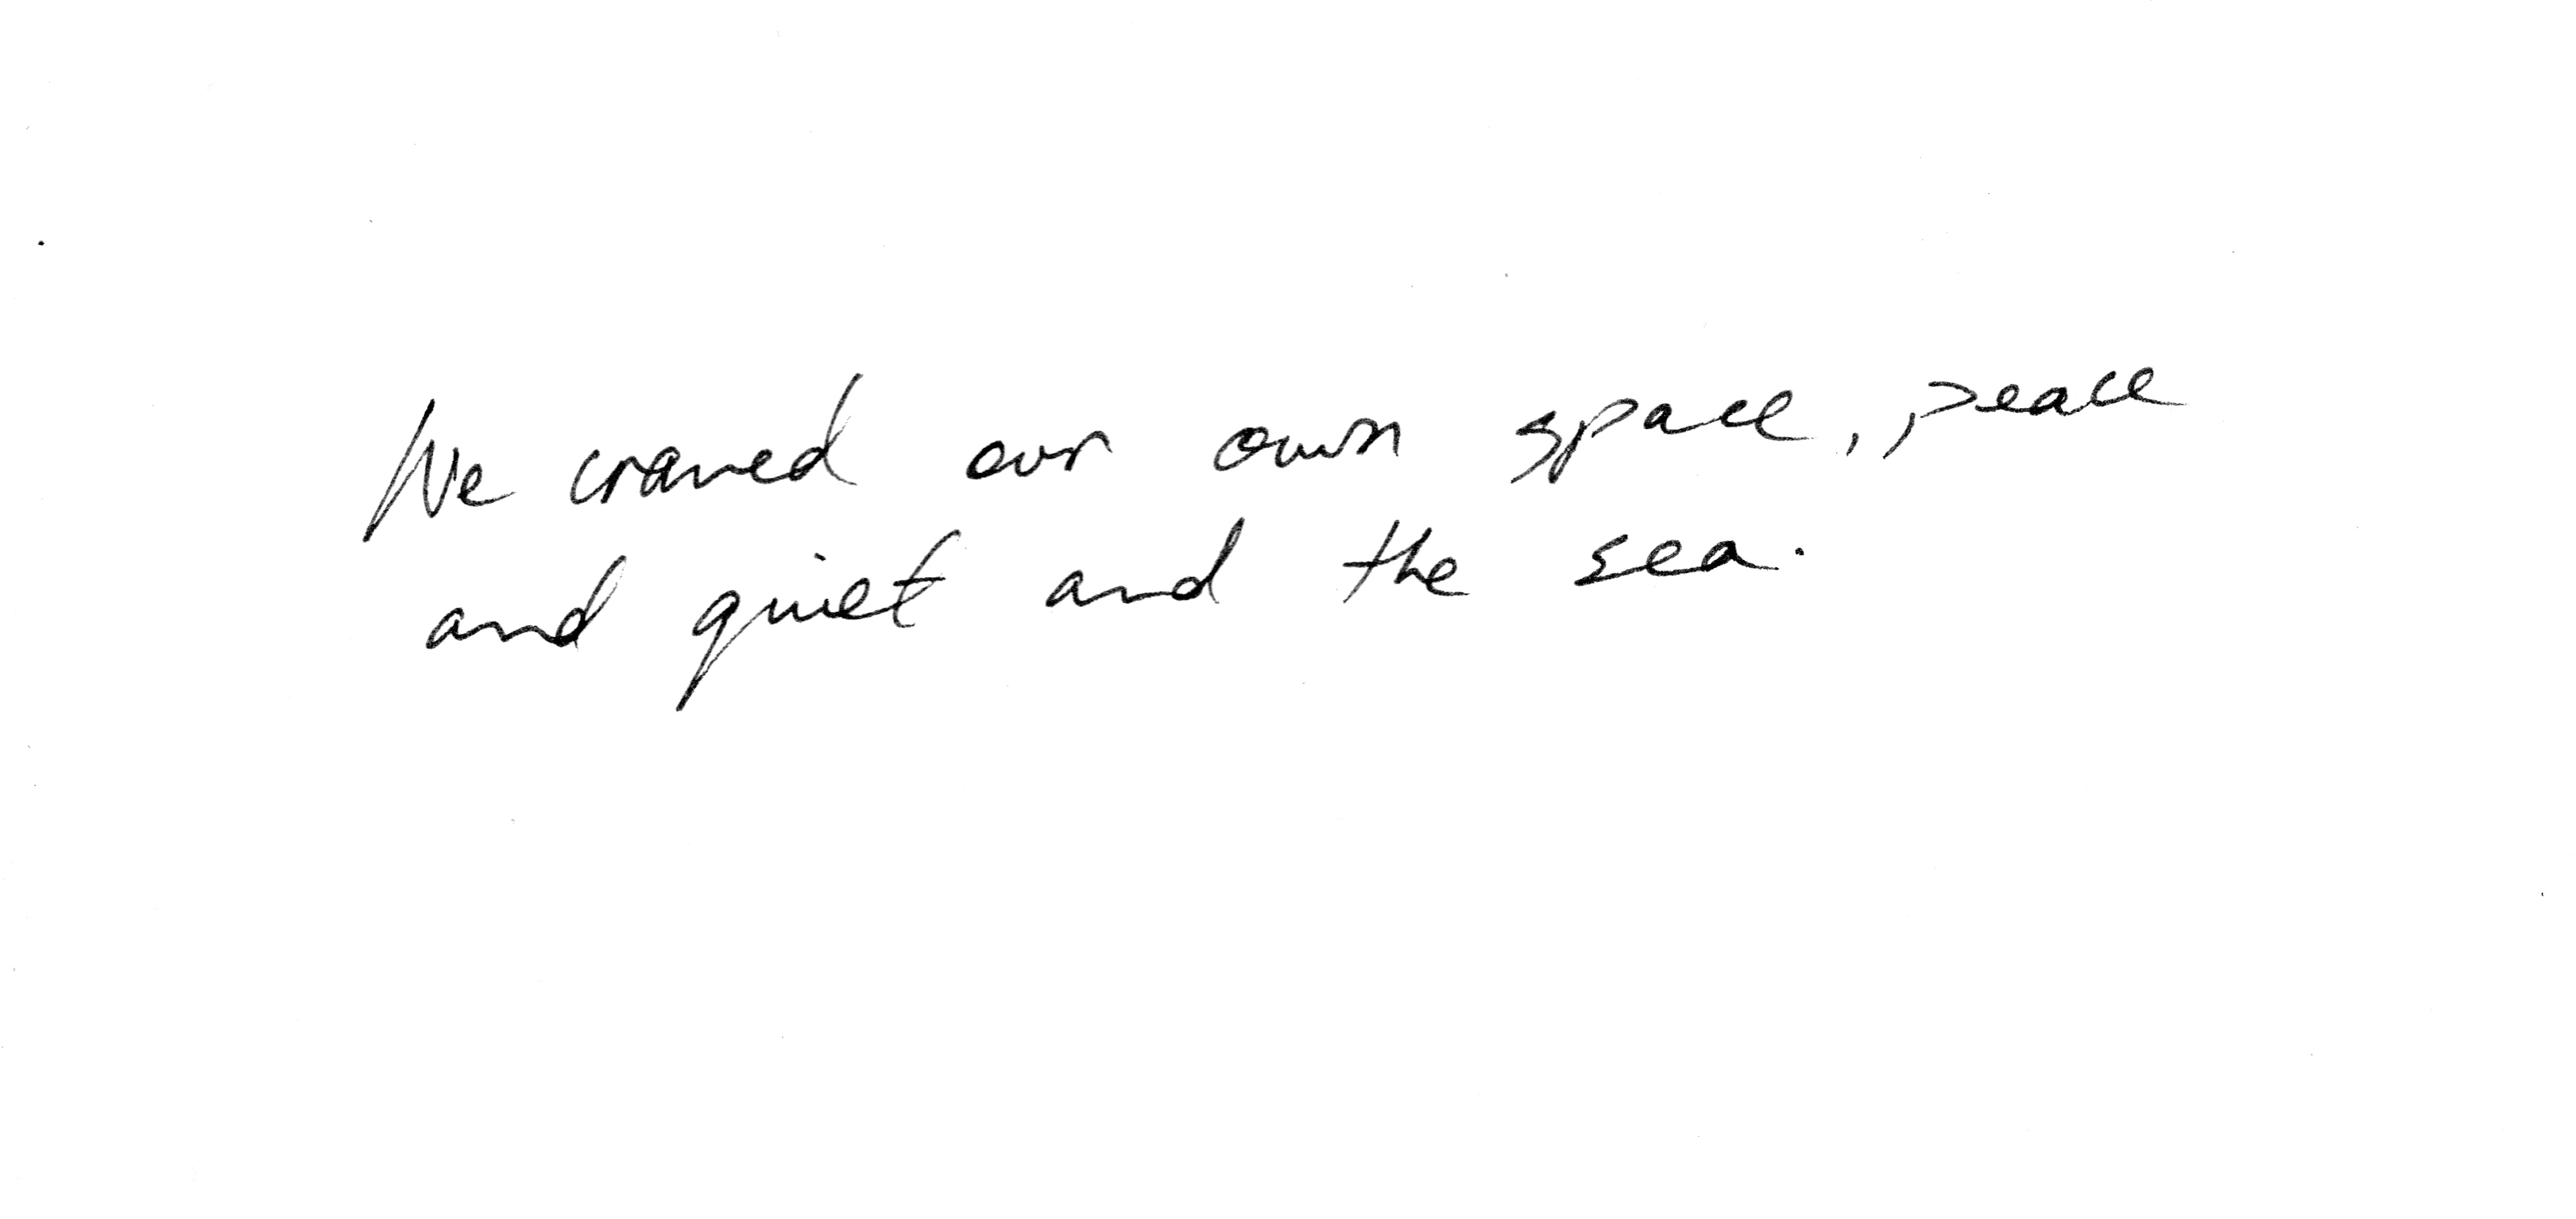 We craved our own space, peace
and quiet and the sea.